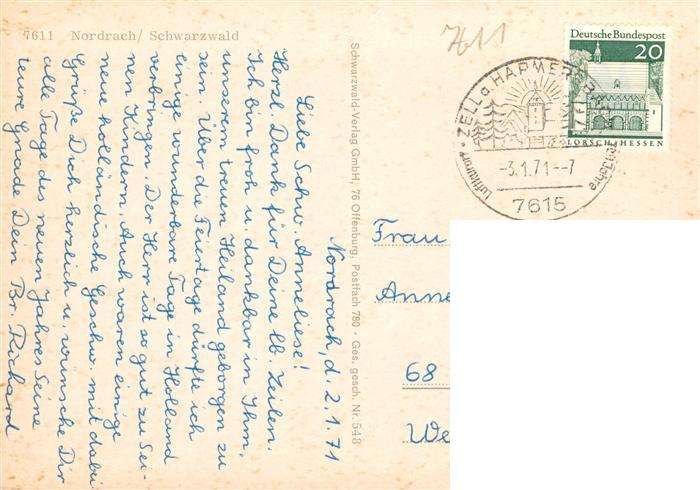 7611 Nordrach/Schwarzwald
7611
Nordrach, d. 2.1.71
Liebe Schw. Anneliese!
Herzl. Dank für Deine lb. Zeilen.
Ich bin froh u. dankbar in Ihm,
unserem treuen Heiland geborgen zu
sein. Über die Feiertage dürfte ich
einige wunderbare Tage in Holland
verbringen. Der Herr ist so gut zu Sei-
nen Kindern. Auch waren einige
neue holländische Geschw. mit dabei
Grüße Dich herzlich u. wünsche Dir
alle Tage des neuen Jahres Seine
teure Gnade Dein Br. Richard
Schwarzwald-Verlag GmbH, 76 Offenburg, Postfach 780 · Ges. gesch. Nr. 548
Deutsche Bundespost
20
LORSCH/HESSEN
ZELL a. HARMERSBACH
Luftkurort
Jahre
-3.1.71--7
7615
Frau
Anne
68
We